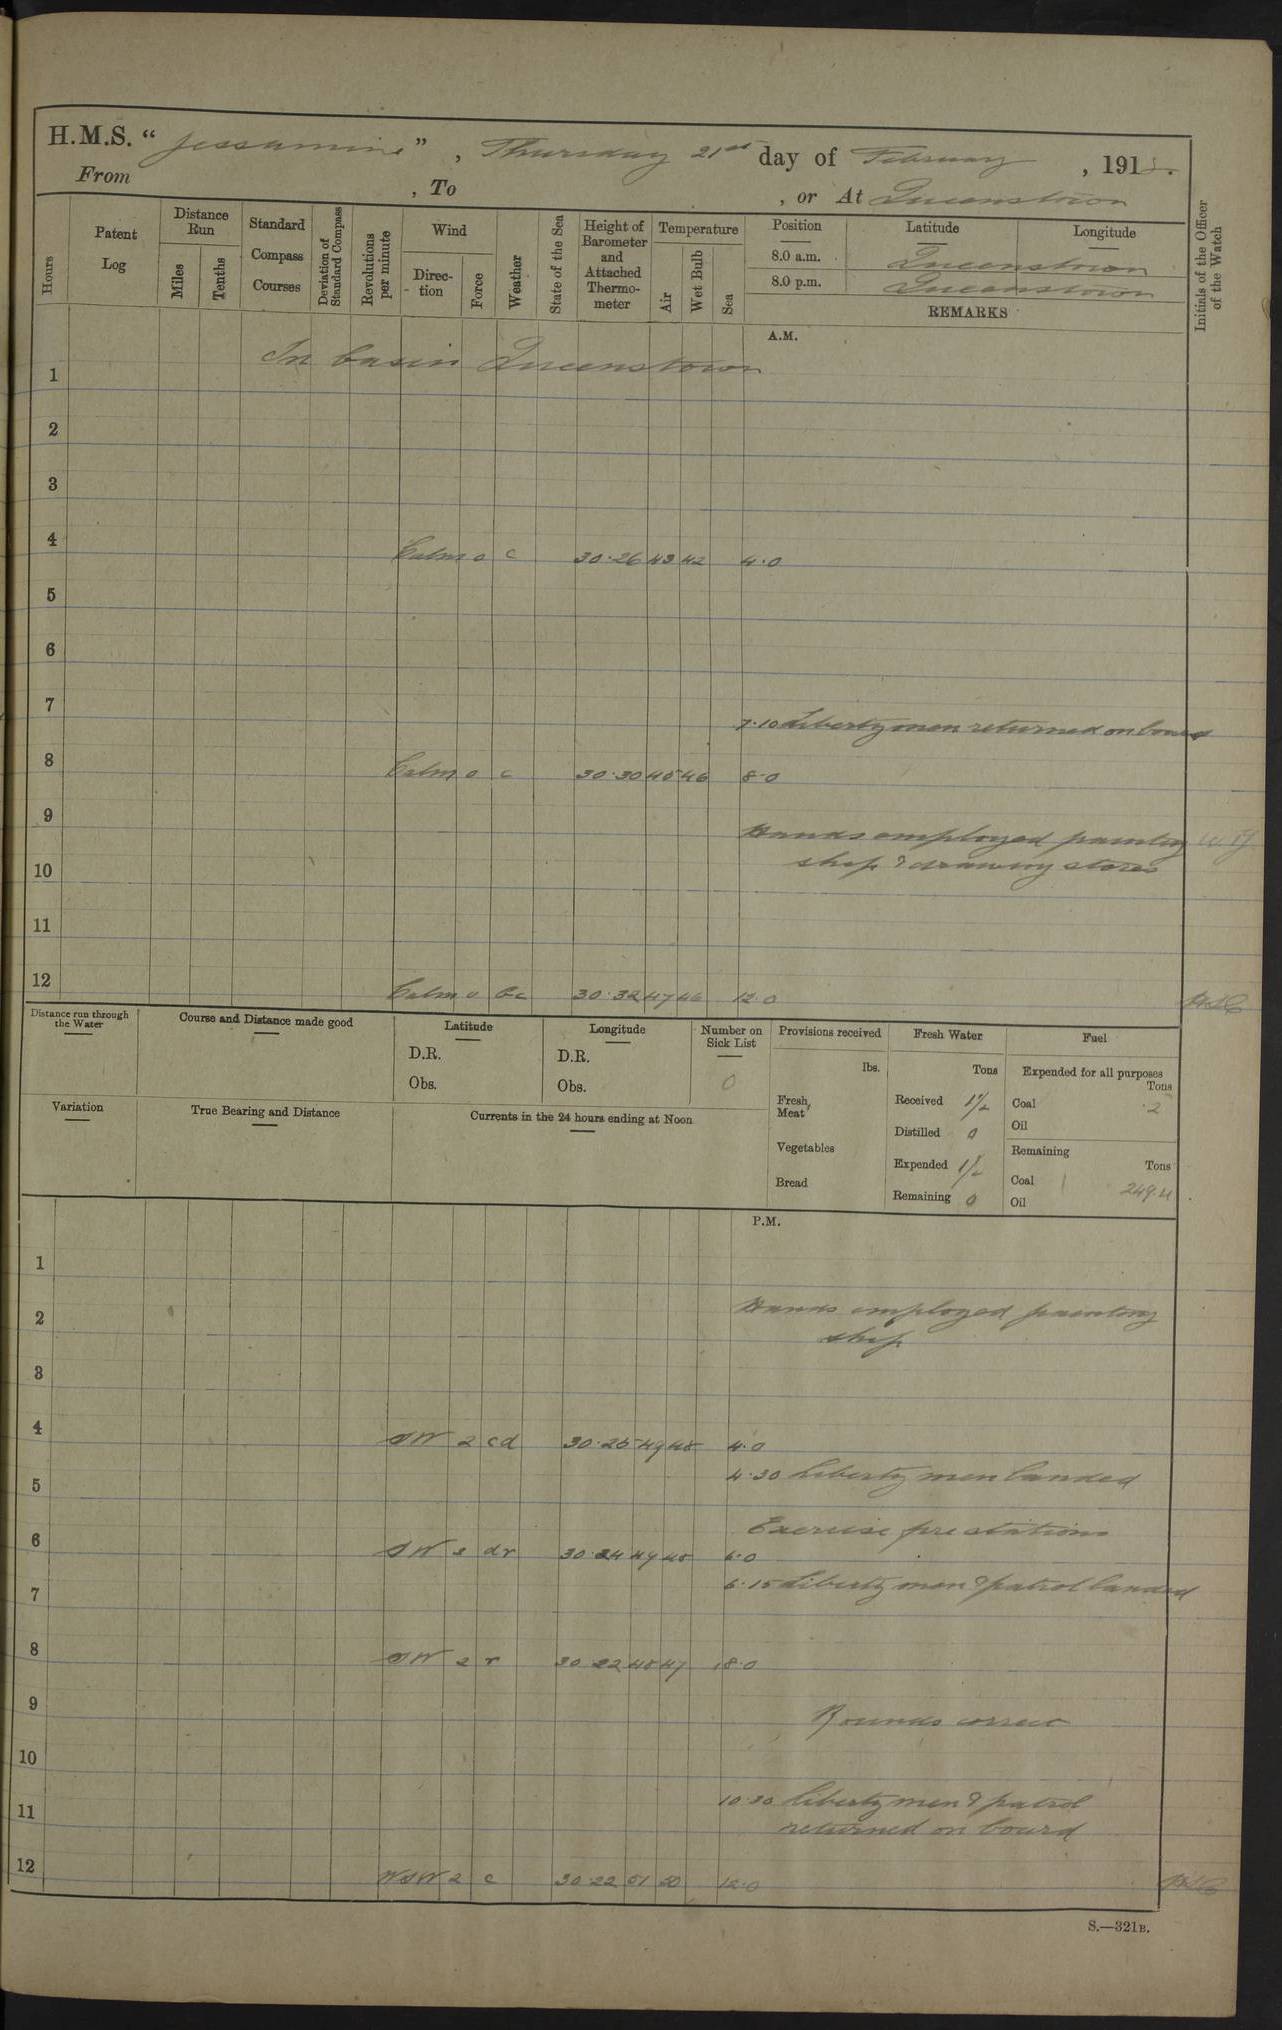 H.M.S. "Jessamine", Thursday 21st day of February, 1918.
From , To , or At Queenstown
Hours
Patent Log
Distance Run
Miles
Tenths
Standard Compass Courses
Deviation of Standard Compass
Revolutions per minute
Wind
Direc-tion
Force
Weather
State of the Sea
Height of Barometer and Attached Thermo-meter
Temperature
Air
Wet Bulb
Sea
Position Latitude Longitude
8.0 a.m. Queenstown
8.0 p.m. Queenstown
REMARKS
Initials of the Officer of the Watch
A.M.
In basin Queenstown
1
2
3
4 Calm 0 c 30.26 43 42 4.0
5
6
7
7.10 Liberty men returned on board
8 Calm 0 c 30.30 45 46 8.0
9
Hands employed painting
ship & drawing stores
10
11
12 Calm 0 bc 30.32 47 46 12.0
Distance run through the Water
Course and Distance made good
Latitude
D.R.
Obs.
Longitude
D.R.
Obs.
Number on Sick List
0
Provisions received
lbs.
Fresh Meat
Vegetables
Bread
Fresh Water
Tons
Received 1½
Distilled 0
Expended 1½
Remaining 0
Fuel
Expended for all purposes
Tons
Coal .2
Oil
Remaining
Tons
Coal 249.4
Oil
Variation
True Bearing and Distance
Currents in the 24 hours ending at Noon
P.M.
1
2 Hands employed painting
ship
3
4 SW 2 cd 30.25 49 48 4.0
4.30 Liberty men landed
5
Exercise fire stations
6 SW 2 dr 30.24 49 48 6.0
6.15 Liberty men & patrol landed
7
8 SW 2 r 30.22 48 47 8.0
9
Rounds correct
10
10.30 Liberty men & patrol
11 returned on board
12 WSW 2 c 30.22 51 50 12.0
S.—321B.